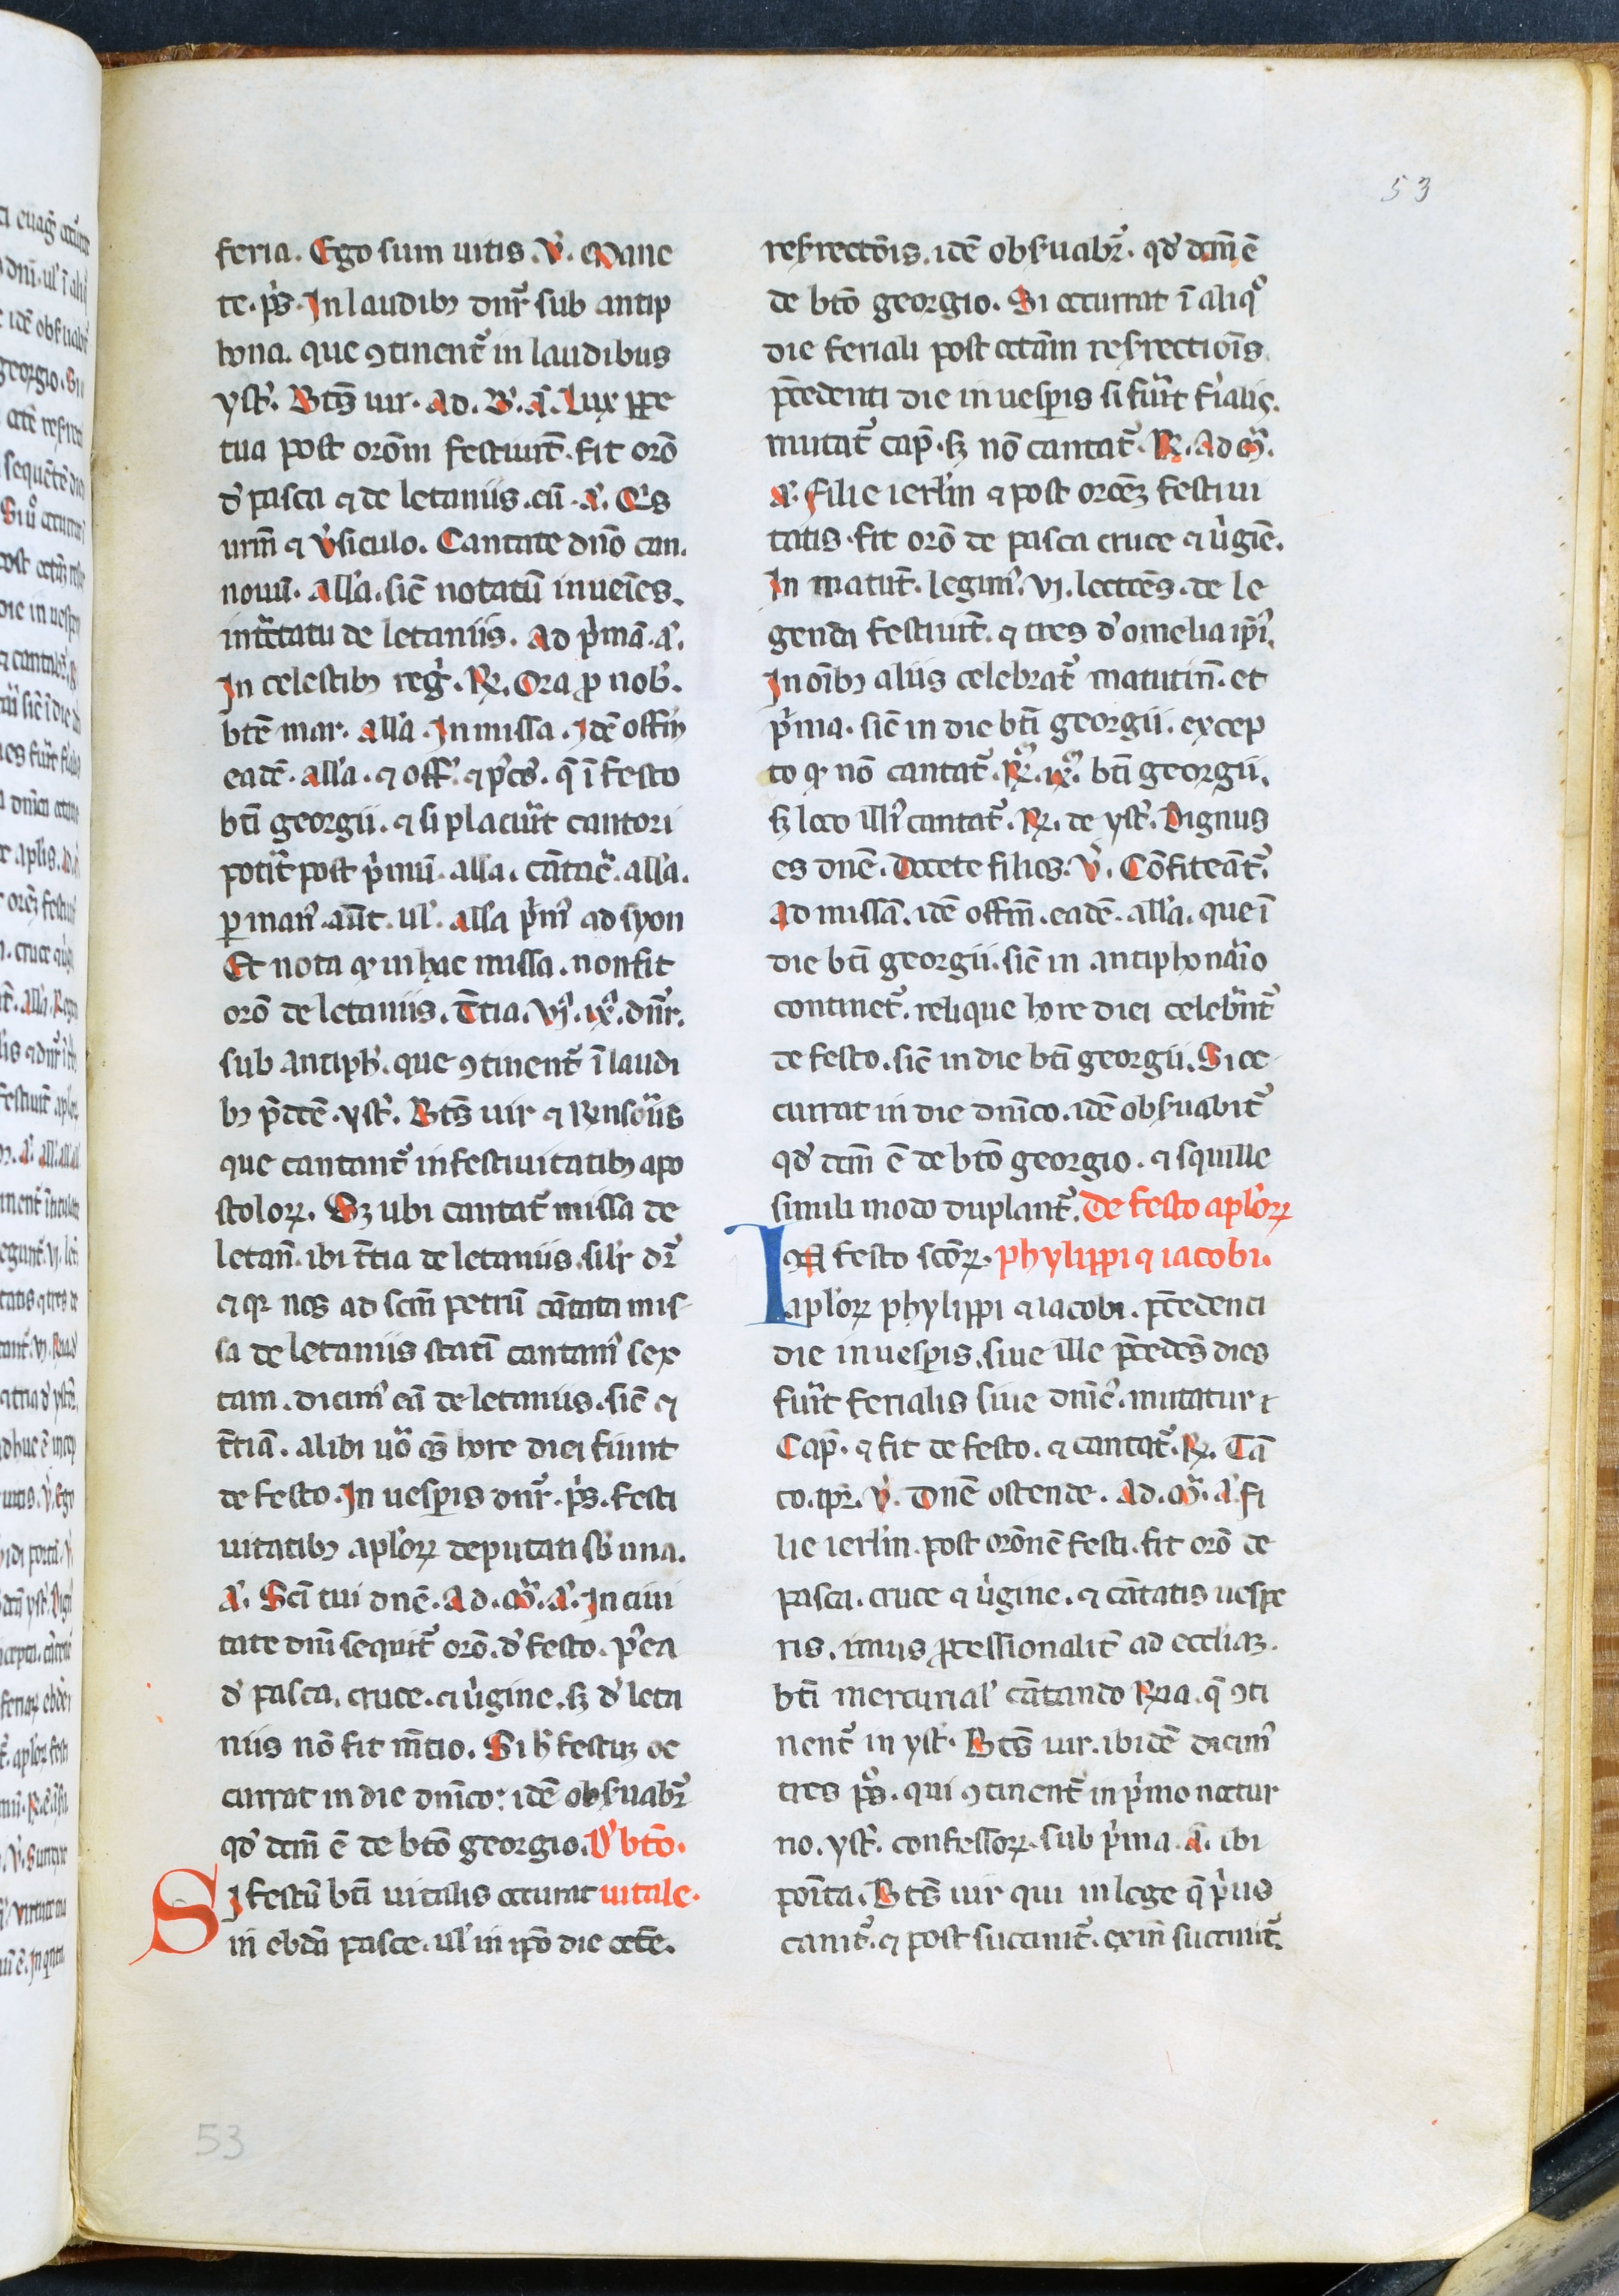 53
feria. Ego sum uitis. V̉. Mane
te. p̉s. In laudibꝫ dn̄r̉ sub antip
hona. que ꝯtinent̉ in laudibus
yst̉. Bt̄s uir. ad. B̉. a̓. Lux ꝑpe
tua post orōm festiuit̄. fit orō
d̓ pasca ⁊ de letaniis. cū. a̓. Q̉s
urm̄ ⁊ v̉siculo. Cantate dn̄o can.
nouū. all̓a. sic̄ notatū inueīes.
int̉ctatu de letaniis. ad p̉mā. a̓.
In celestibꝫ reg̓. ꝶ. Ora ꝓ nob̓.
bt̄e mar. all̓a. In missa. Idē offm̄
eadē. all̓a. ⁊ off̓. ⁊ p̉c̄s. q̄ ī festo
bt̄i georgii. ⁊ si placuūt cantori
potīt post p̉mū. all̓a. cāntāc̉. all̓a.
ꝑ man̓. aūt. ul̓. all̓a p̉m̓ ad syon
Et nota ꝙ in hac missa. non fit
orō de letaniis. T̄tia. vj̉. ix̉. dn̄r.
sub antiph̓. que ꝯtinent̉ ī laudi
bꝫ p̄dc̄e. yst̉. Bt̄s uir ⁊ Rn̄soriis
que cantant̉ in festiuitatibꝫ apo
stoloꝝ. Sꝫ ubi cantat̉ missa de
letan̄. ibi t̄tia de letaniis. sil̓r dr̄
⁊ qꝛ nos ad scm̄ petrū cātata mis-
sa de letaniis statī cantam̓ sex
tam. dicim̓ eā de letaniis. sic̄ ⁊
t̄tiā. alibi uō om̄s hore diei fiunt
de festo. In uesꝑis dn̄r̉. p̉s. festi
uitatibꝫ apl̓oꝝ deputati sb̓ una.
a̓. Sc̄i tui dn̄e. ad. M̉. a̓. In ciui
tate dn̄i sequit̉ orō. d̓ festo. p̉ea
d̓ pasca. cruce. ⁊ ūgine. sꝫ d̓ leta
niis nō fit m̄tio. Si h̓ festuꝫ oc
currat in die dn̄ico: idē obs̓uabr̉
qd̓ dcm̄ ē de bt̄o georgio. D̓ bt̄o.
Si festū bt̄i uitalis occurrat uitale.
in ebd̄a pasce. ul̓ in ipō die octē.
resr̓rectōis. idē obs̓uabr̉. qd̓ dcm̄ ē
de bt̄o georgio. Si occurrat ī aliq̊
die feriali post octām resr̓rectiōis.
p̄cedenti die in uesꝑis si fuīt f̓ialis.
mutat̉ cap̄. sꝫ nō cantat̉. ꝶ. Ad M̉.
a̓. Filie ierl̓m ⁊ post orōeꝫ festiui
tatis. fit orō de pasca cruce ⁊ ūgiē.
In matut̄. legim̓. vj. lectōes. de le
genda festiuit̄. ⁊ tres d̓ omelia ip̄i.
In oībꝫ aliis celebrat̉ matutin̄. et
p̉ma. sic̄ in die bt̄i georgii. excep
to ꝙ nō cantat̉. ꝶ. ix̊. bt̄i georgii.
sꝫ loco illi̓ cantat̉. ꝶ. de yst̉. Dignus
es dn̄e. Docete filios. V̉. Cōfiteāt̉.
ad missā. idē offm̄. eadē. all̓a. que ī
die bt̄i georgii. sic̄ in antiphonario
continet̉. relique hore diei celebrāt̉
de festo. sic̄ in die bt̄i georgii. Si oc-
currat in die dn̄ico. idē obs̓uabit̉
qd̓ dcm̄ ē de bt̄o georgio. ⁊ squille
simili modo duplant̉. De festo apl̓oꝝ
IN festo scōꝝ. phylippi ⁊ iacobi.
apl̓oꝝ phylippi ⁊ iacobi. p̄cedenti
die in uesꝑis. siue ille p̄cedēs dies
fuīt ferialis siue dn̄ic̓. mutatur
Cap̄. ⁊ fit de festo. ⁊ cantat̉. ꝶ. Tā
to. tpr̄. V̉. Dn̄e ostende. Ad. M̉. a̓. fi
lie ierl̓m. post orōnē festi. fit orō de
pasca. cruce ⁊ ūgine. ⁊ cātatis uespe
ris. imus ꝓcessionalit̄ ad eccl̓iaꝫ.
bt̄i mercurial̓ cātando Rꝛ̄a. q̄ ꝯti
nent̉ in yst̉. Bt̄s uir. ibidē dicim̓
tres p̊s. qui ꝯtinent̉ in p̉mo noctur
no. yst̉. confessoꝝ. sub p̉ma. a̓. ibi
poīta. Bt̄s uir qui in lege q̄ p̉us
canit̉. ⁊ post succinit̉. exin̄ succinit̉.
53